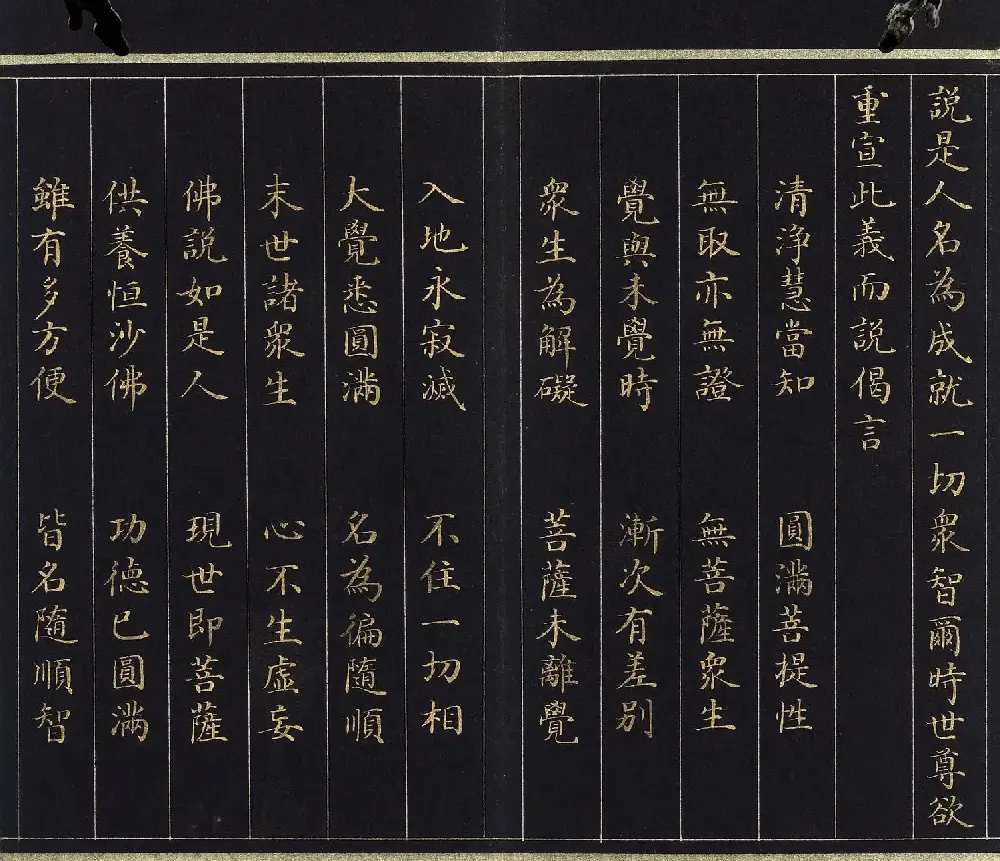 説是人名為成就一切衆智爾時世尊欲
重宣此義而説偈言
清淨慧當知　圓滿菩提性
無取亦無證　無菩薩衆生
覺與未覺時　漸次有差別
衆生為解礙　菩薩未離覺
入地永寂滅　不住一切相
大覺悉圓滿　名為徧隨順
末世諸衆生　心不生虛妄
佛説如是人　現世即菩薩
供養恒沙佛　功德已圓滿
雖有多方便　皆名隨順智